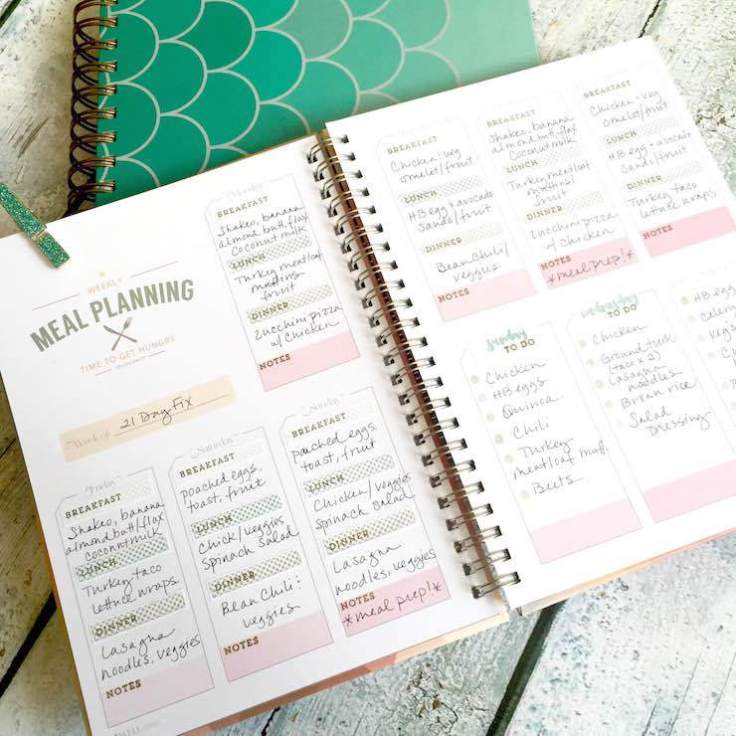 WEEKLY
MEAL PLANNING
TIME TO GET HUNGRY
Week of 21 Day Fix
Monday
BREAKFAST
Shakeo, banana
almond butt/flax
Coconut milk
LUNCH
Turkey meat/oaf
muffins/
fruit
DINNER
Zucchini pizza
w/ Chicken
NOTES
Friday
BREAKFAST
Shakeo, banana
almond butt/flax
coconut milk
LUNCH
Turkey taco
lettuce wraps.
DINNER
Lasagna
noodles, veggies
NOTES
Saturday
BREAKFAST
poached eggs,
toast, fruit
LUNCH
Chick/veggies
spinach salad
DINNER
Bean Chili:
veggies
NOTES
Sunday
BREAKFAST
poached eggs.
toast, fruit
LUNCH
Chicken/veggies
spinach salad
DINNER
Lasagna
noodles, veggies
NOTES
*meal prep!*
BREAKFAST
Chicken-veg
omelet/
fruit
LUNCH
HB egg & avocado
Sands/fruit
DINNER
Bean Chili/
veggies
NOTES
BREAKFAST
Shakeo, banana
almond butt, flax
Coconut milk
LUNCH
Turkey meat/oaf
muffins/
fruit
DINNER
Zucchini pizza
w/ Chicken
NOTES
*meal prep!*
BREAKFAST
Chicken-veg
omelet/fruit
LUNCH
HB egg & avocado
Sands/fruit
DINNER
Turkey taco
lettuce wraps.
NOTES
sunday
TO DO
Chicken
HB eggs
Quinoa
Chili
Turkey
Meatloaf muf.
Beets
wednesday
TO DO
Chicken
Ground turk
(taco x 2)
Lasagna
noodles
Brown rice
Salad
Dressing
HB egg